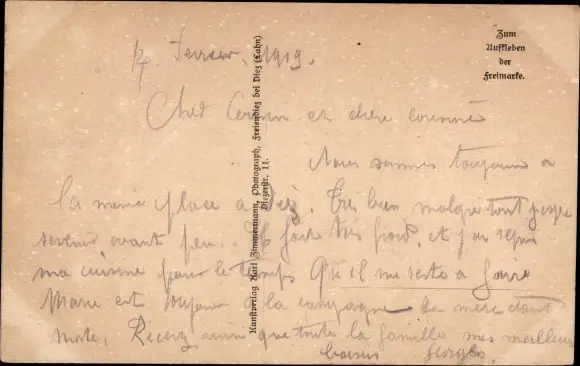 Zum
Aufkleben
der
Freimarke.
Kunstverlag Karl Zimmermann, Photograph, Freiendiez bei Diez (Lahn)
11.
1919.
Cher et chère cousine
Nous sommes toujours a
la meme place a Diez. Très bien malgré tout j'espère
revenir avant peu. fait très froid, et j'ai
ma cuisine pour le temps qu'il me reste a faire
Marie est toujours a la campagne sa mère étant
morte. Recevez ainsi que toute la famille mes meilleurs
baisers Georges.